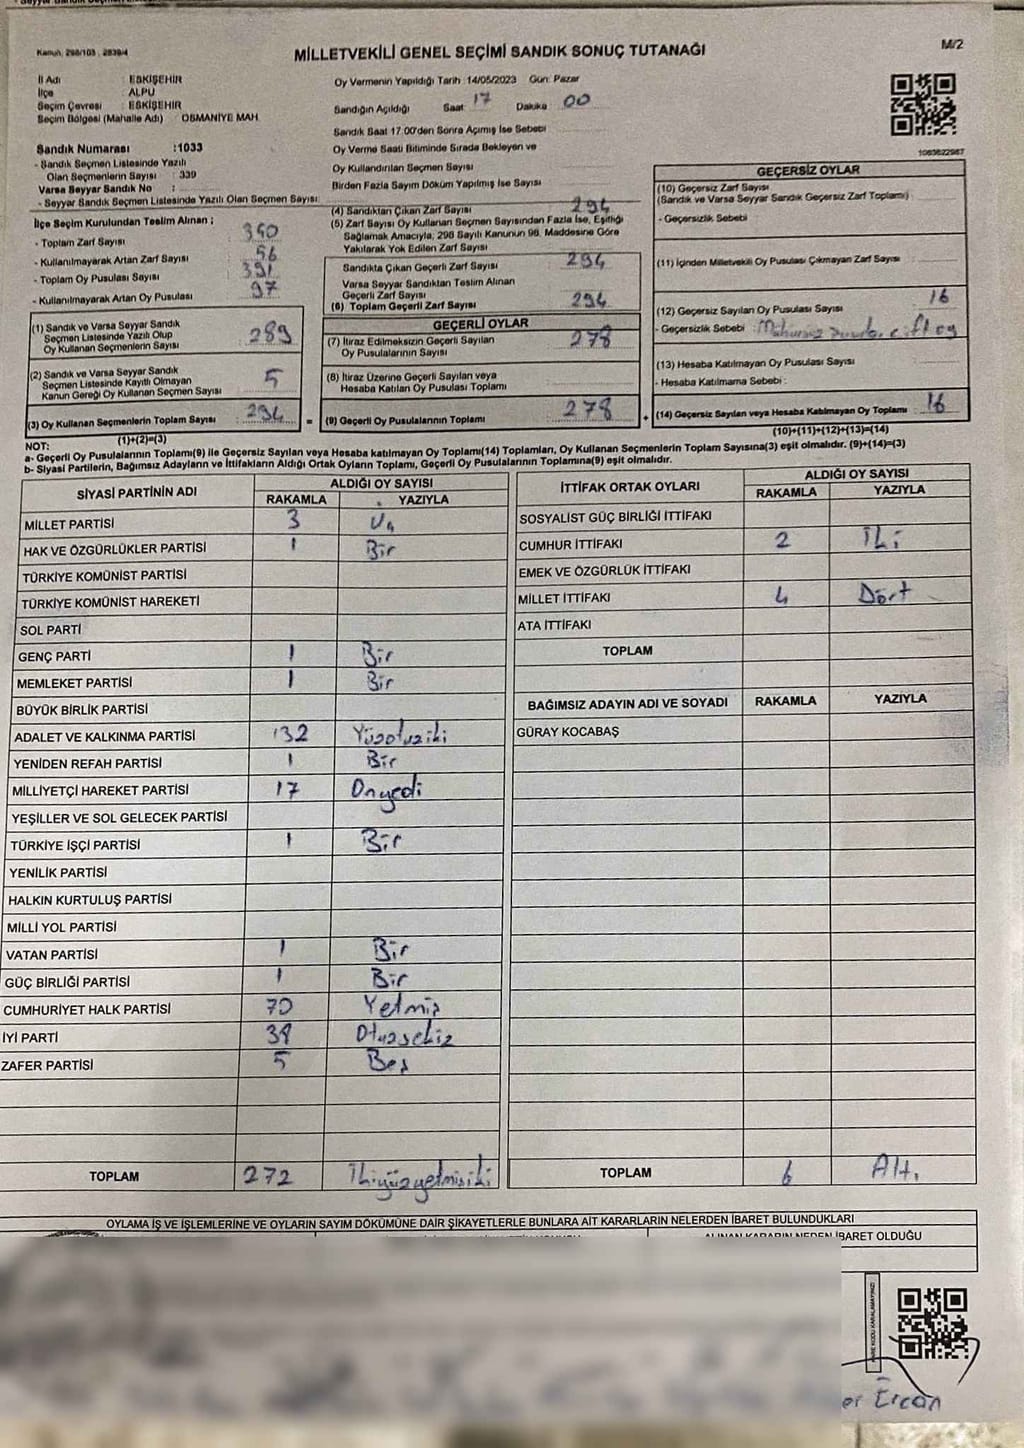 Kanun: 298/103 , 2839/4
M/2
MİLLETVEKİLİ GENEL SEÇİMİ SANDIK SONUÇ TUTANAĞI
İl Adı : ESKİŞEHİR
İlçe : ALPU
Seçim Çevresi : ESKİŞEHİR
Seçim Bölgesi (Mahalle Adı) : OSMANİYE MAH.
Sandık Numarası :1033
- Sandık Seçmen Listesinde Yazılı
Olan Seçmenlerin Sayısı : 339
Varsa Seyyar Sandık No :
- Seyyar Sandık Seçmen Listesinde Yazılı Olan Seçmen Sayısı:
Oy Vermenin Yapıldığı Tarih :14/05/2023 Gün: Pazar
Sandığın Açıldığı Saat: 17 Dakika 00
Sandık Saat 17:00'den Sonra Açımış İse Sebebi
Oy Verme Saati Bitiminde Sırada Bekleyen ve
Oy Kullandırılan Seçmen Sayısı
Birden Fazla Sayım Döküm Yapılmış İse Sayısı
1083622987
İlçe Seçim Kurulundan Teslim Alınan ;
- Toplam Zarf Sayısı 350
- Kullanılmayarak Artan Zarf Sayısı 56
- Toplam Oy Pusulası Sayısı 391
- Kullanılmayarak Artan Oy Pusulası 97
(1) Sandık ve Varsa Seyyar Sandık
Seçmen Listesinde Yazılı Olup
Oy Kullanan Seçmenlerin Sayısı 289
(2) Sandık ve Varsa Seyyar Sandık
Seçmen Listesinde Kayıtlı Olmayan
Kanun Gereği Oy Kullanan Seçmen Sayısı 5
(3) Oy Kullanan Seçmenlerin Toplam Sayısı 294 =
(1)+(2)=(3)
(4) Sandıktan Çıkan Zarf Sayısı 294
(5) Zarf Sayısı Oy Kullanan Seçmen Sayısından Fazla İse, Eşitliği
Sağlamak Amacıyla, 298 Sayılı Kanunun 98. Maddesine Göre
Yakılarak Yok Edilen Zarf Sayısı
Sandıkta Çıkan Geçerli Zarf Sayısı 294
Varsa Seyyar Sandıktan Teslim Alınan
Geçerli Zarf Sayısı
(6) Toplam Geçerli Zarf Sayısı 294
GEÇERLİ OYLAR
(7) İtiraz Edilmeksizin Geçerli Sayılan
Oy Pusulalarının Sayısı 278
(8) İtiraz Üzerine Geçerli Sayılan veya
Hesaba Katılan Oy Pusulası Toplamı
(9) Geçerli Oy Pusulalarının Toplamı 278 +
GEÇERSİZ OYLAR
(10) Geçersiz Zarf Sayısı
(Sandık ve Varsa Seyyar Sandık Geçersiz Zarf Toplamı)
- Geçersizlik Sebebi
(11) İçinden Milletvekili Oy Pusulası Çıkmayan Zarf Sayısı
(12) Geçersiz Sayılan Oy Pusulası Sayısı 16
- Geçersizlik Sebebi :
(13) Hesaba Katılmayan Oy Pusulası Sayısı
- Hesaba Katılmama Sebebi :
(14) Geçersiz Sayılan veya Hesaba Katılmayan Oy Toplamı 16
(10)+(11)+(12)+(13)=(14)
NOT:
a- Geçerli Oy Pusulalarının Toplamı(9) ile Geçersiz Sayılan veya Hesaba katılmayan Oy Toplamı(14) Toplamları, Oy Kullanan Seçmenlerin Toplam Sayısına(3) eşit olmalıdır. (9)+(14)=(3)
b- Siyasi Partilerin, Bağımsız Adayların ve İttifakların Aldığı Ortak Oyların Toplamı, Geçerli Oy Pusulalarının Toplamına(9) eşit olmalıdır.
SİYASİ PARTİNİN ADI ALDIĞI OY SAYISI
RAKAMLA YAZIYLA
MİLLET PARTİSİ 3 Üç
HAK VE ÖZGÜRLÜKLER PARTİSİ 1 Bir
TÜRKİYE KOMÜNİST PARTİSİ
TÜRKİYE KOMÜNİST HAREKETİ
SOL PARTİ
GENÇ PARTİ 1 Bir
MEMLEKET PARTİSİ 1 Bir
BÜYÜK BİRLİK PARTİSİ
ADALET VE KALKINMA PARTİSİ 132 Yüzotuziki
YENİDEN REFAH PARTİSİ 1 Bir
MİLLİYETÇİ HAREKET PARTİSİ 17 Onyedi
YEŞİLLER VE SOL GELECEK PARTİSİ
TÜRKİYE İŞÇİ PARTİSİ 1 Bir
YENİLİK PARTİSİ
HALKIN KURTULUŞ PARTİSİ
MİLLİ YOL PARTİSİ
VATAN PARTİSİ 1 Bir
GÜÇ BİRLİĞİ PARTİSİ 1 Bir
CUMHURİYET HALK PARTİSİ 70 Yetmiş
İYİ PARTİ 38 Otuzsekiz
ZAFER PARTİSİ 5 Beş
TOPLAM 272 İkiyüzyetmişiki
İTTİFAK ORTAK OYLARI ALDIĞI OY SAYISI
RAKAMLA YAZIYLA
SOSYALİST GÜÇ BİRLİĞİ İTTİFAKI
CUMHUR İTTİFAKI 2 İki
EMEK VE ÖZGÜRLÜK İTTİFAKI
MİLLET İTTİFAKI 4 Dört
ATA İTTİFAKI
TOPLAM
BAĞIMSIZ ADAYIN ADI VE SOYADI RAKAMLA YAZIYLA
GÜRAY KOCABAŞ
TOPLAM 6 Altı
OYLAMA İŞ VE İŞLEMLERİNE VE OYLARIN SAYIM DÖKÜMÜNE DAİR ŞİKAYETLERLE BUNLARA AİT KARARLARIN NELERDEN İBARET BULUNDUKLARI
ALINAN KARARIN NEDEN İBARET OLDUĞU
KARE KODU KARALAMAYINIZ!
Ercan